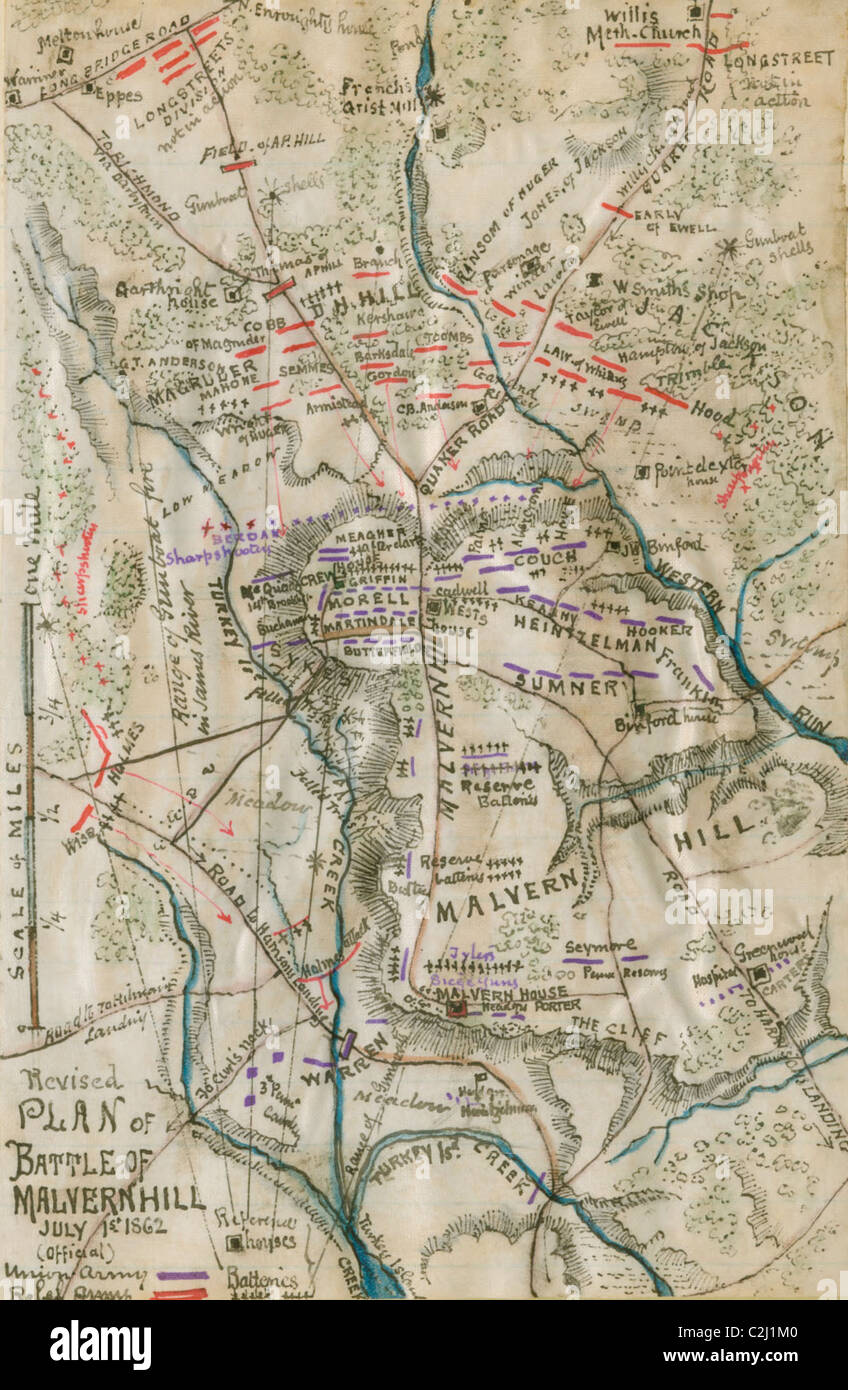 N. Enroughty's house
Melton house
Warriner
LONG BRIDGE ROAD
Eppes
LONGSTREETS
DIVISION
not in action
Pond
French's
Grist Mill
Willis
Meth-Church
LONGSTREET
not in
action
QUAKER ROAD
TO RICHMOND
via Darbytown
FIELD of A.P. HILL
Gunboat
shells
RANSOM OF HUGER
JONES, of JACKSON
EARLY
OF EWELL
Gunboat
shells
Thomas of
A.P. HILL
Branch
Parsonage
Winder
Lawton
W Smiths Shop
Garthright
house
D.H. HILL
Kershaw
Taylor of
Ewell
JACKSON
COBB
of Magruder
Barksdale
TOOMBS
LAW of Whiting
Hampton of Jackson
TRIMBLE
G.T. ANDERSON
SEMMES
Gordon
Garland
Hood
MAGRUDER
MAHONE
Armistead
C.B. Anderson
SWAMP
Wright
of HUGER
QUAKER ROAD
LOW MEADOW
Pointdexter
house
Sharpshooters
one mile
Range of Gunboat fire
in James River
Sharpshooters
BERDAN
Sharpshooters
MEAGHER
after dark
GRIFFIN
MORELL
MARTINDALE
BUTTERFIELD
McQuade
14th Brooklyn
Buchanan
SYKES
COUCH
J.W. Binford
WESTERN
RUN
Caldwell
WESTS
house
KEARNY
HEINTZELMAN
HOOKER
Franklin
SUMNER
Binford house
TURKEY Isd CREEK
3/4
1/2
1/4
SCALE of MILES
HOLMES
WISE
Meadow
MALVERN HILL
Reserve
Batteries
Reserve
batteries
MALVERN
HILL
ROAD
ROAD to Harrisons Landing
Holmes
Tylers
Siege Guns
Seymore
Penna Reserves
Hospital
Greenwood
house
CARTER
TO HARRISONS LANDING
MALVERN HOUSE
Headqrs PORTER
THE CLIFF
Road to
Landing
WARREN
3d Penna
Cavalry
to Curls Neck
Meadow
Range of Gunboats
TURKEY Isd CREEK
Turkey Island
CREEK
Revised
PLAN OF
BATTLE OF
MALVERN HILL
JULY 1st 1862
(Official)
Union Army
Rebel Army
Reference
houses
Batteries
alamy
Image ID: C2J1M0
www.alamy.com